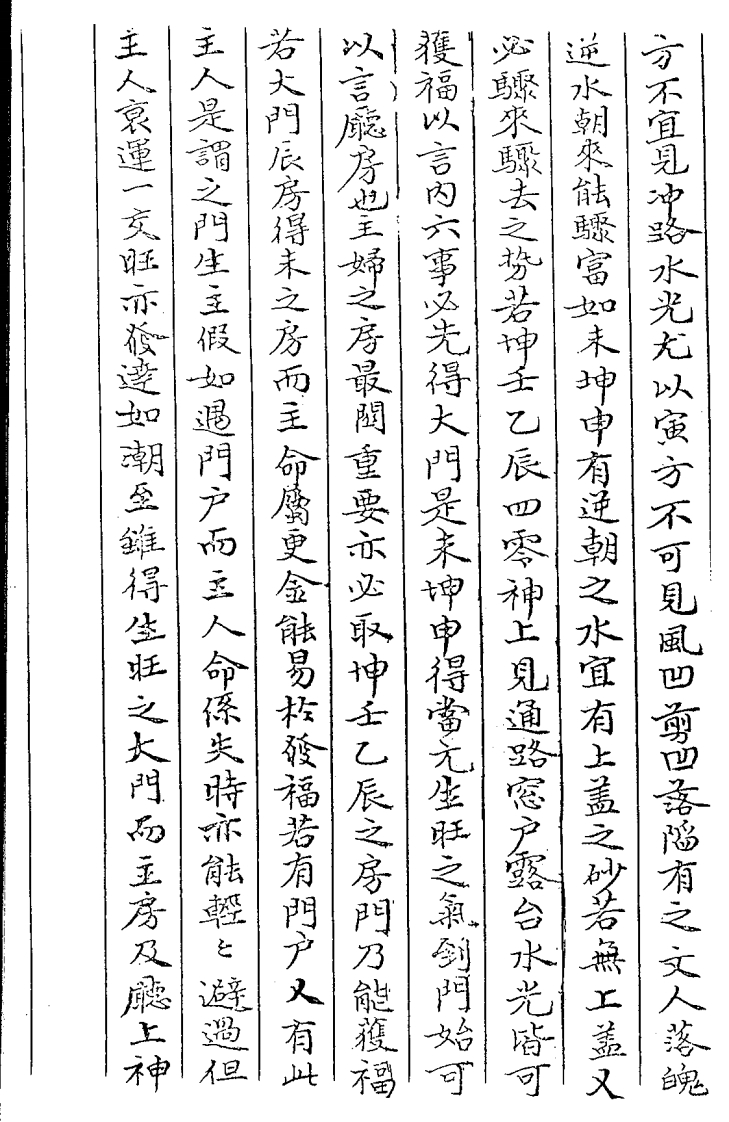 方不宜見冲路水光尤以寅方不可見風凹剪凹落陷有之文人落魄
逆水朝來能驟富如未坤申有逆朝之水宜有上蓋之砂若無上蓋又
必驟來驟去之势若坤壬乙辰四零神上見通路窓户露台水光皆可
獲福以言内六事必先得大門是未坤申得當元生旺之氣到門始可
以言廳房也主婦之房最関重要亦必取坤壬乙辰之房門乃能獲福
若大門辰房得未之房而主命屬更金能易於發福若有門户又有此
主人是謂之門生主假如遇門户而主人命係失時亦能輕々避過但
主人衰運一交旺亦發達如潮至雖得生旺之大門而主房及廳上神